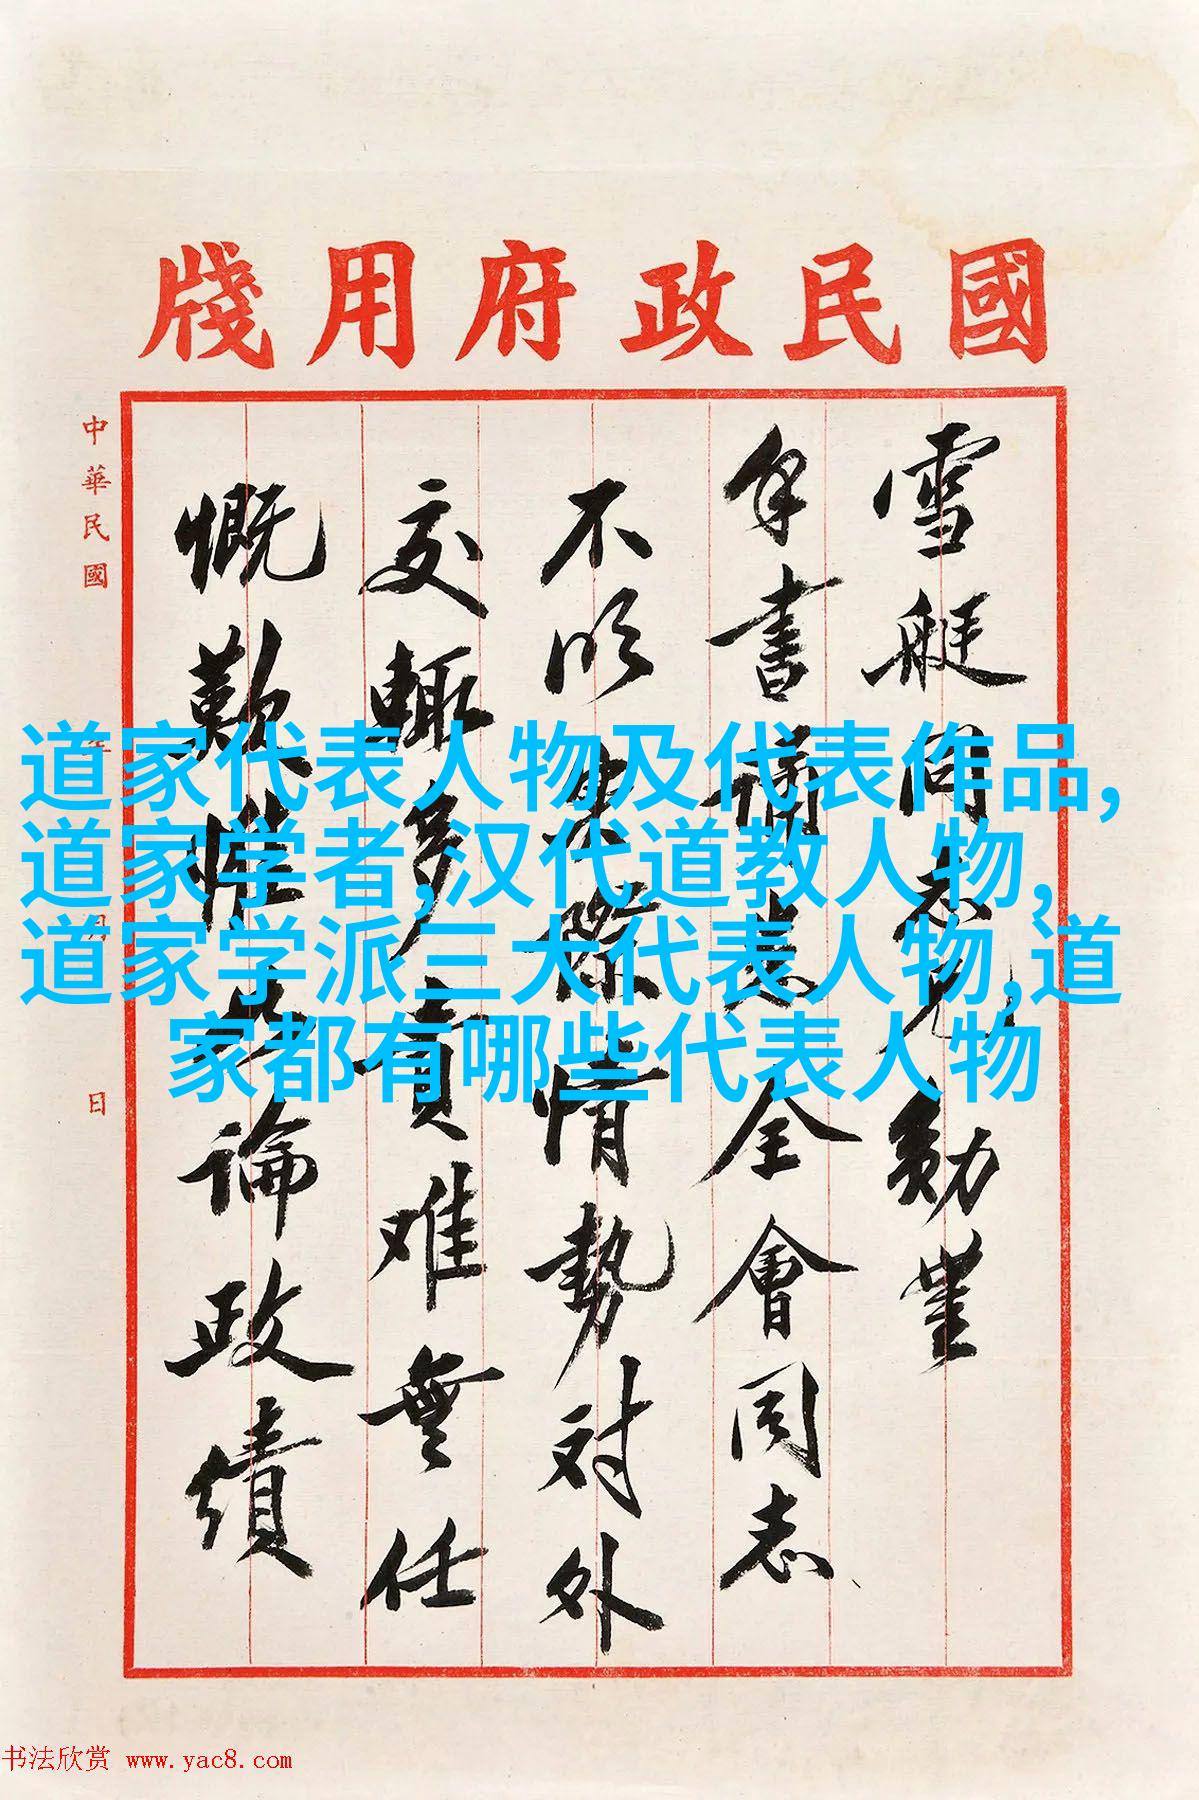 國民政府用牋
雪艇同志兄勛豐
手書誦悉全會同志
不明國際情勢对外
交輒多責难無任
慨歎惟 論政績
中華民國 年 月 日
道家代表人物及代表作品,
道家学者,汉代道教人物,
道家学派三大代表人物,道
家都有哪些代表人物
书法欣赏 www.yac8.com